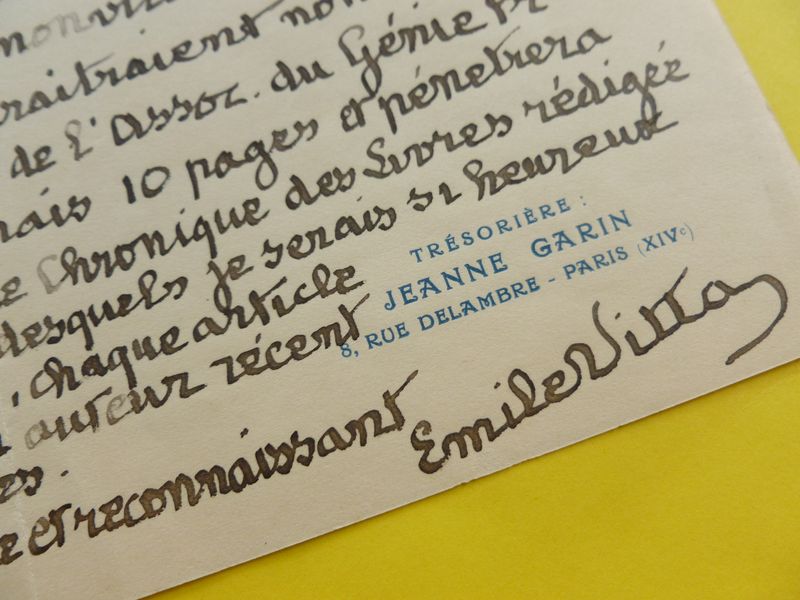 raitraient
de l'Assoc. du Génie
10 pages et pénetrera
Chronique des Livres rédigée
desquels je serais si heureux
, chaque article
auteur récent
et reconnaissant
TRÉSORIÈRE :
JEANNE GARIN
8, RUE DELAMBRE - PARIS (XIVe)
Emile Vitta